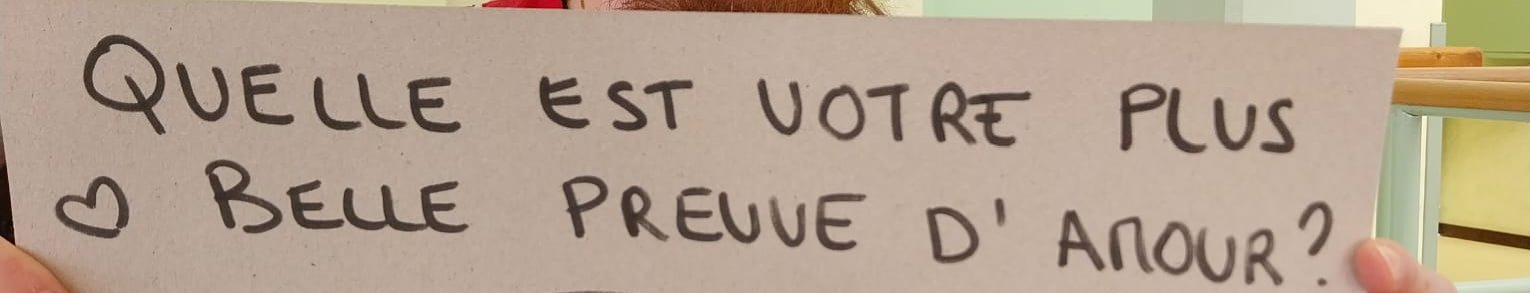 QUELLE EST VOTRE PLUS
♡ BELLE PREUVE D'AMOUR?